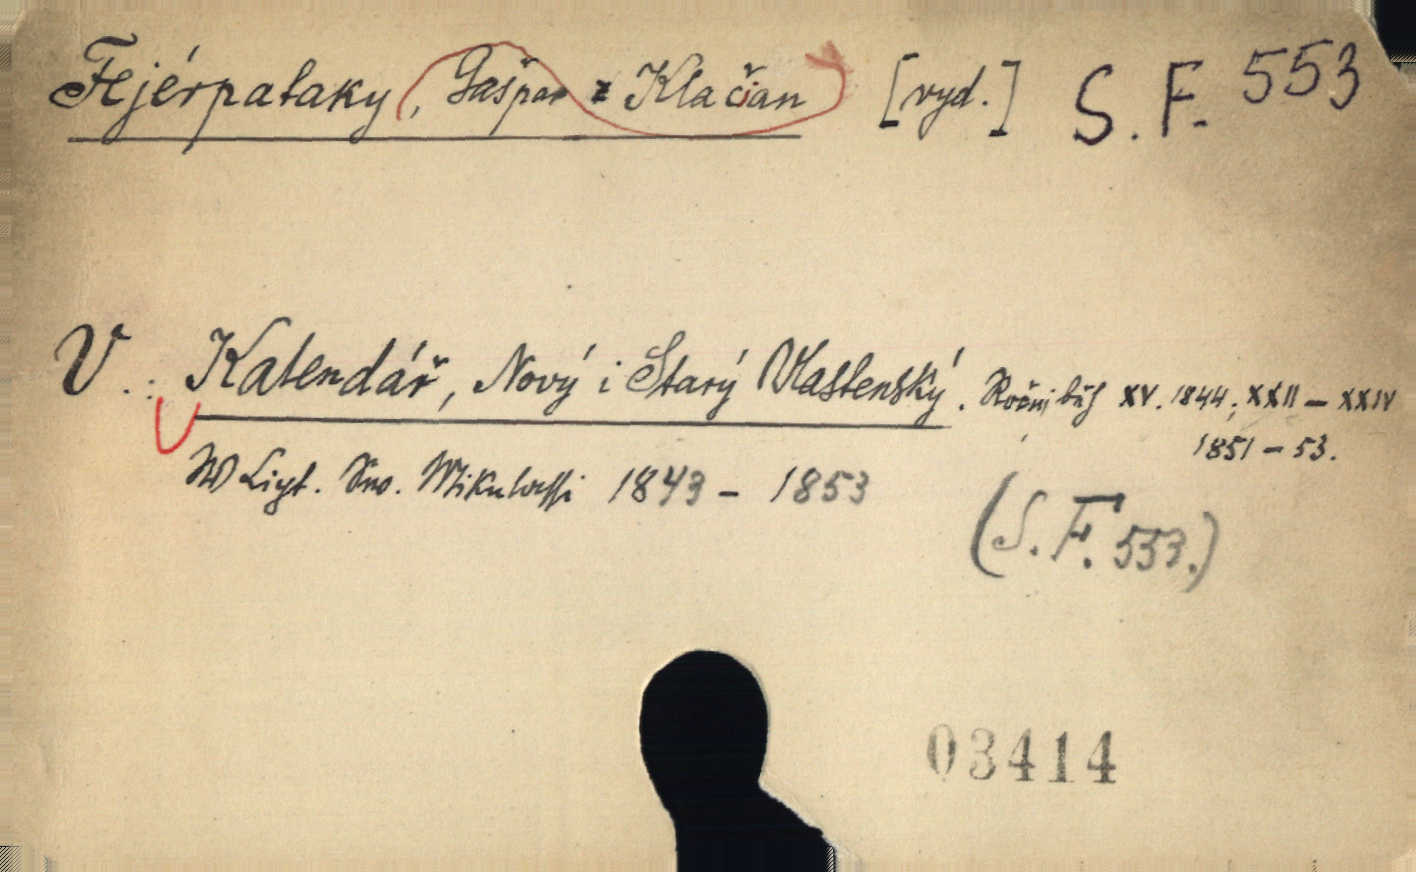 Fejérpataky, Gašpar z Klačian [vyd.] S. F. 553
V.: Kalendár, Nový i Starý Vlastenský. Ročni běh XV. 1844; XXII – XXIV
1851 – 53.
W Lipt. Swo. Mikulassi 1843 – 1853
(S. F. 553.)
03414